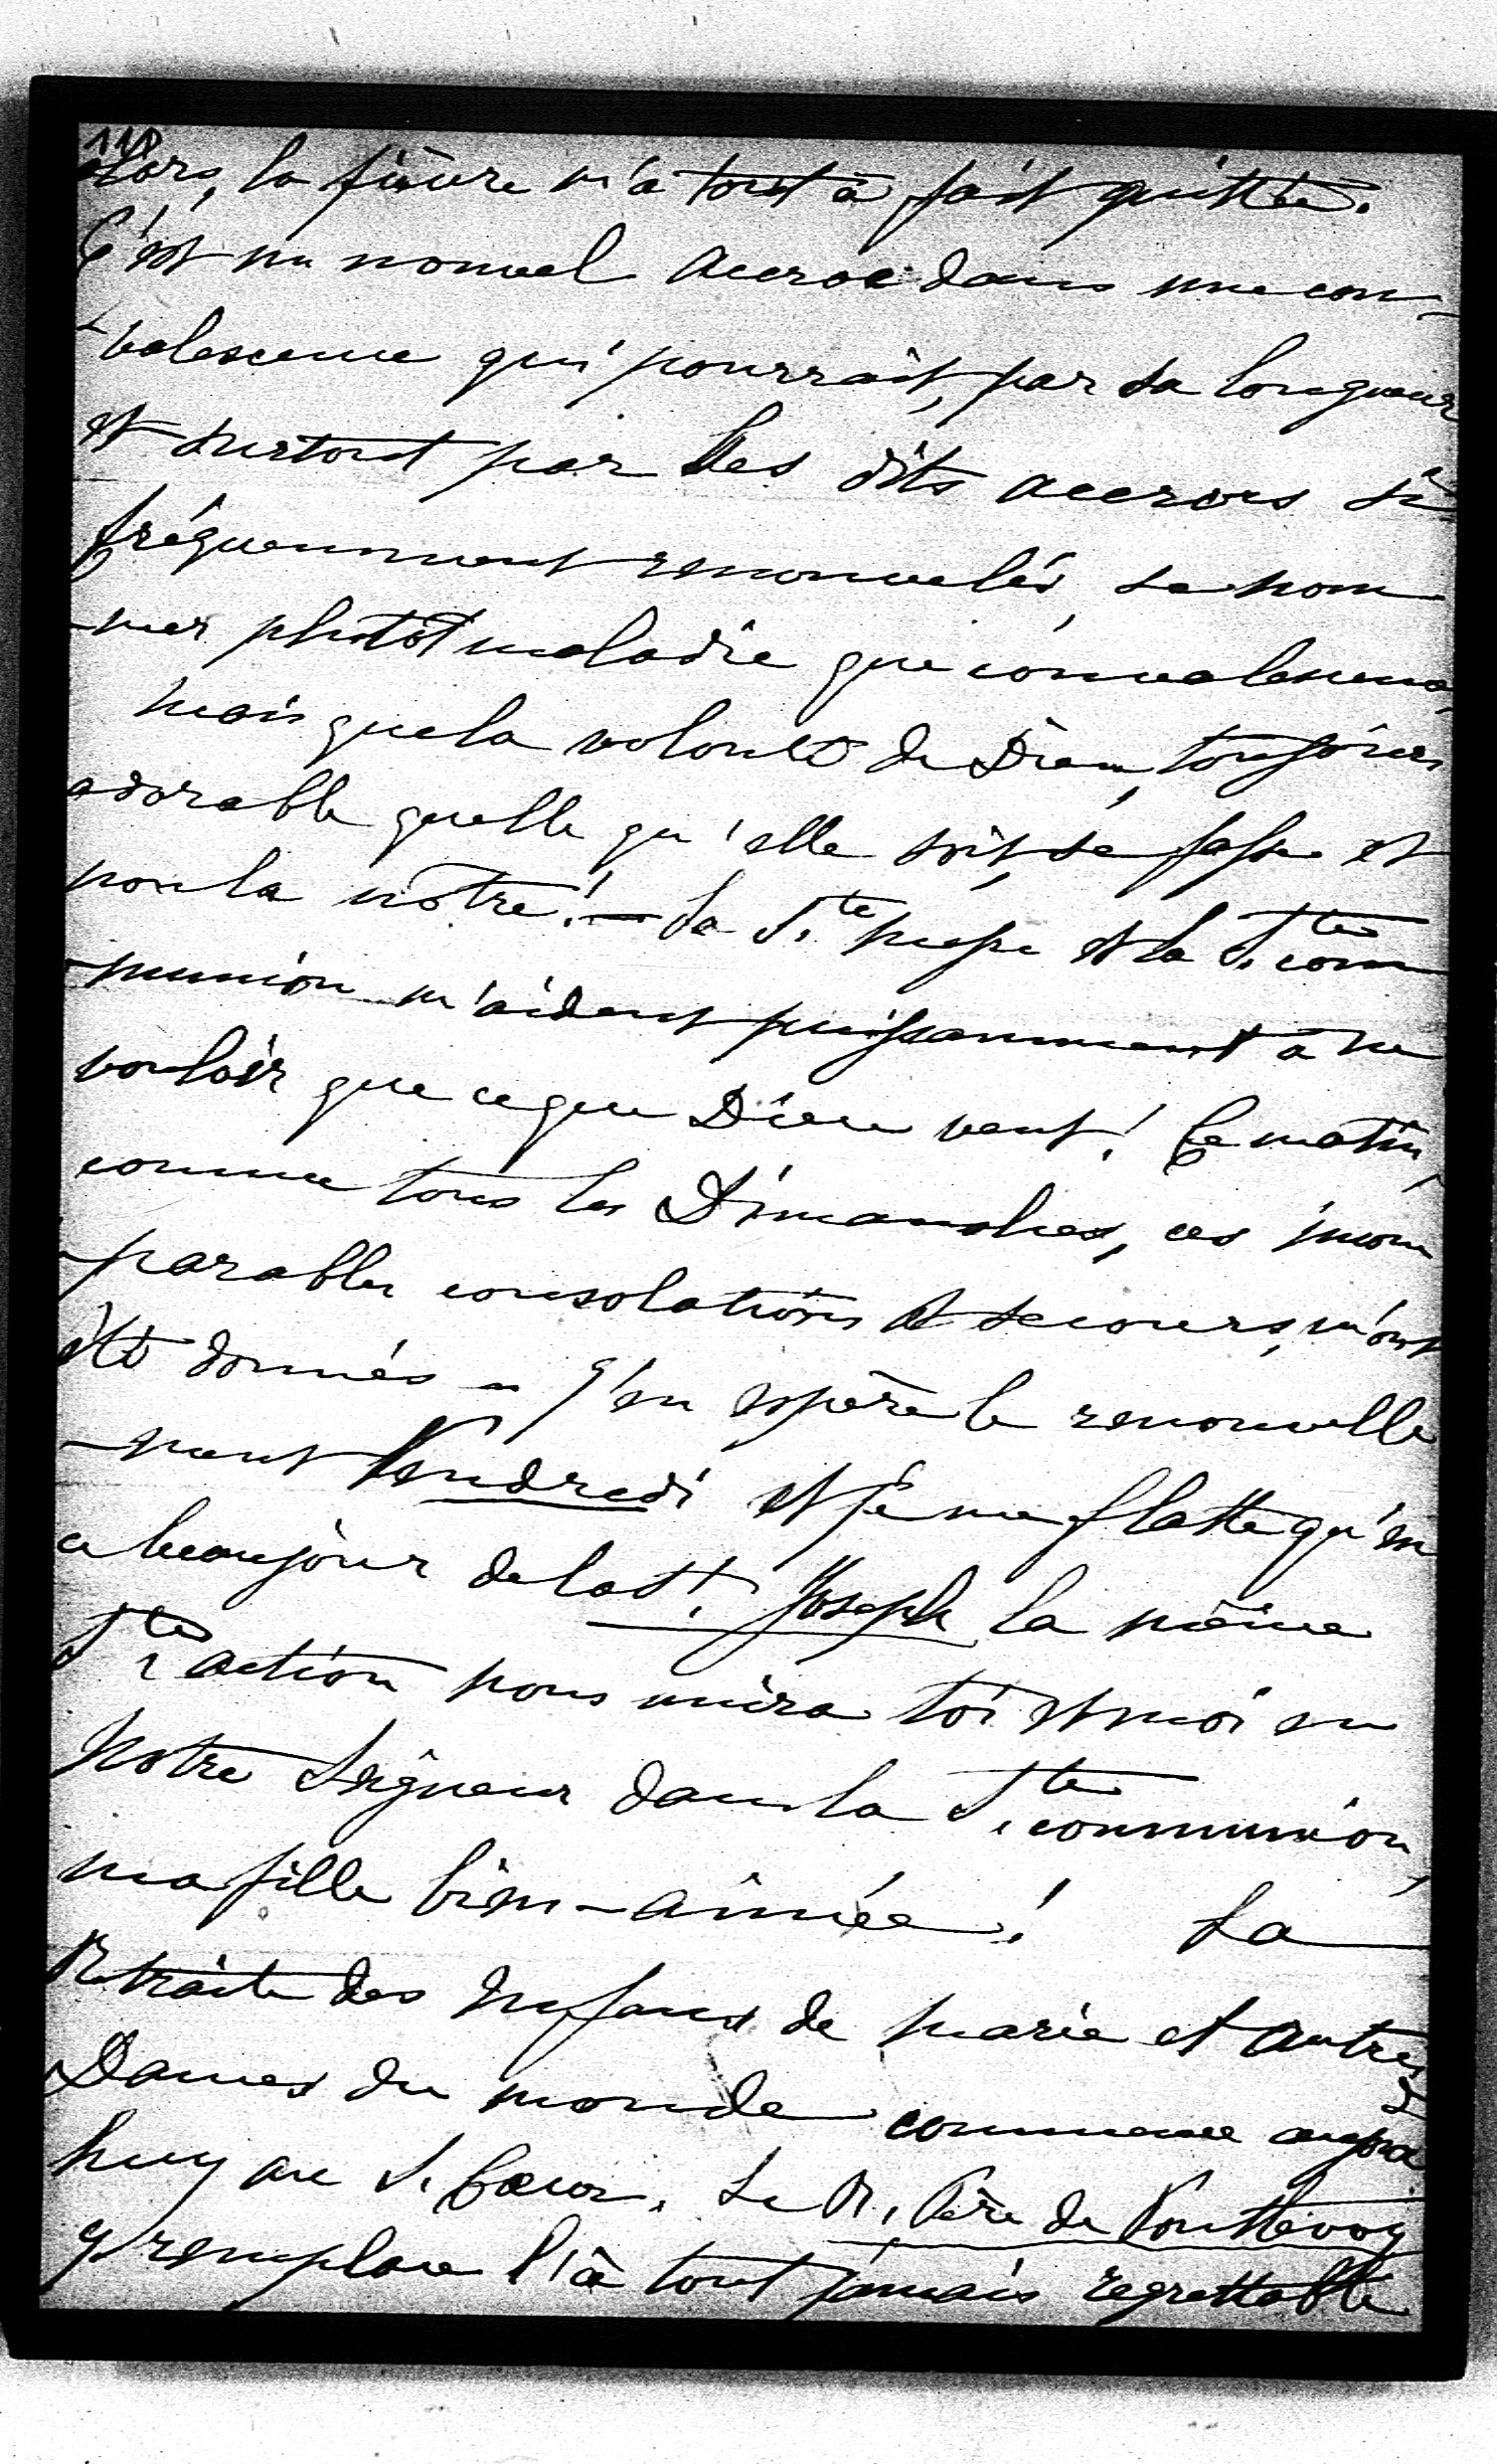 110
alors, la fièvre m'a tout à fait quittée.
C'est un nouvel accroc dans une con-
-valescence qui pourrait, par sa longueur
et surtout par les dits accrocs si
fréquemment renouvelés, se nom
-mer plutôt maladie que convalescence,
mais que la volonté de Dieu, toujours
adorable quelle qu'elle soit, se fasse et
non la nôtre! — La Ste messe et la Ste com
-munion m'aident puissamment à ne
vouloir que ce que Dieu veut! Ce matin,
comme tous les Dimanches, ces incom
-parables consolations et secours, m'ont
été donnés — j'en espère le renouvelle
-ment Vendredi et je me flatte qu'en
ce beau jour de la St. Joseph la même
Ste action nous unira toi et moi en
Notre Seigneur dans la Ste communion,
ma fille bien-aimée! La
Retraite des Enfans de Marie et autres
Dames du monde commence aujourd'
huy au S. Cœur. Le R. Père de Ponttevoy
y remplace l'à tout jamais regrettable